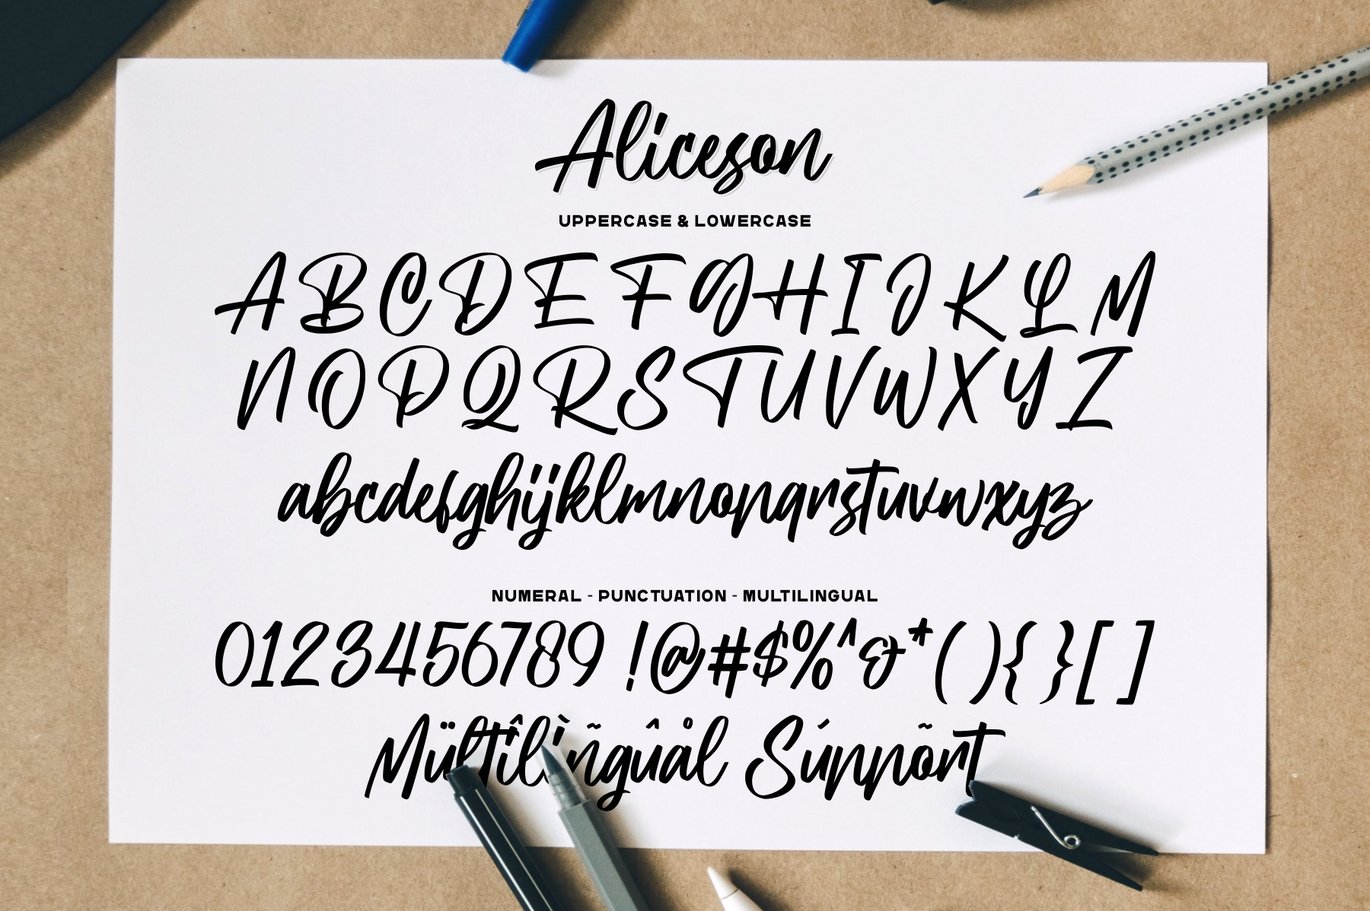 Aliceson
UPPERCASE & LOWERCASE
A B C D E F G H I J K L M
N O P Q R S T U V W X Y Z
abcdefghijklmnopqrstuvwxyz
NUMERAL - PUNCTUATION - MULTILINGUAL
0123456789 !@#$%^&*( ){ }[ ]
Mültîlìñgûål Súppõrt